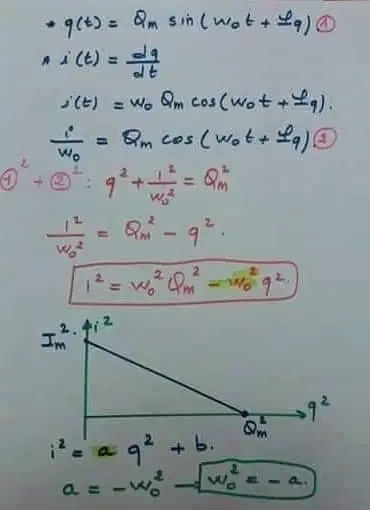 * q(t) = Qm sin(w₀t + φq) ①
* i(t) = dq/dt
i(t) = w₀ Qm cos(w₀t + φq).
i/w₀ = Qm cos(w₀t + φq) ②
①² + ②² : q² + i²/w₀² = Qm²
i²/w₀² = Qm² - q².
i² = w₀² Qm² - w₀² q².
i²
Im²
Qm²
q²
i² = a q² + b.
a = -w₀² → w₀² = -a.